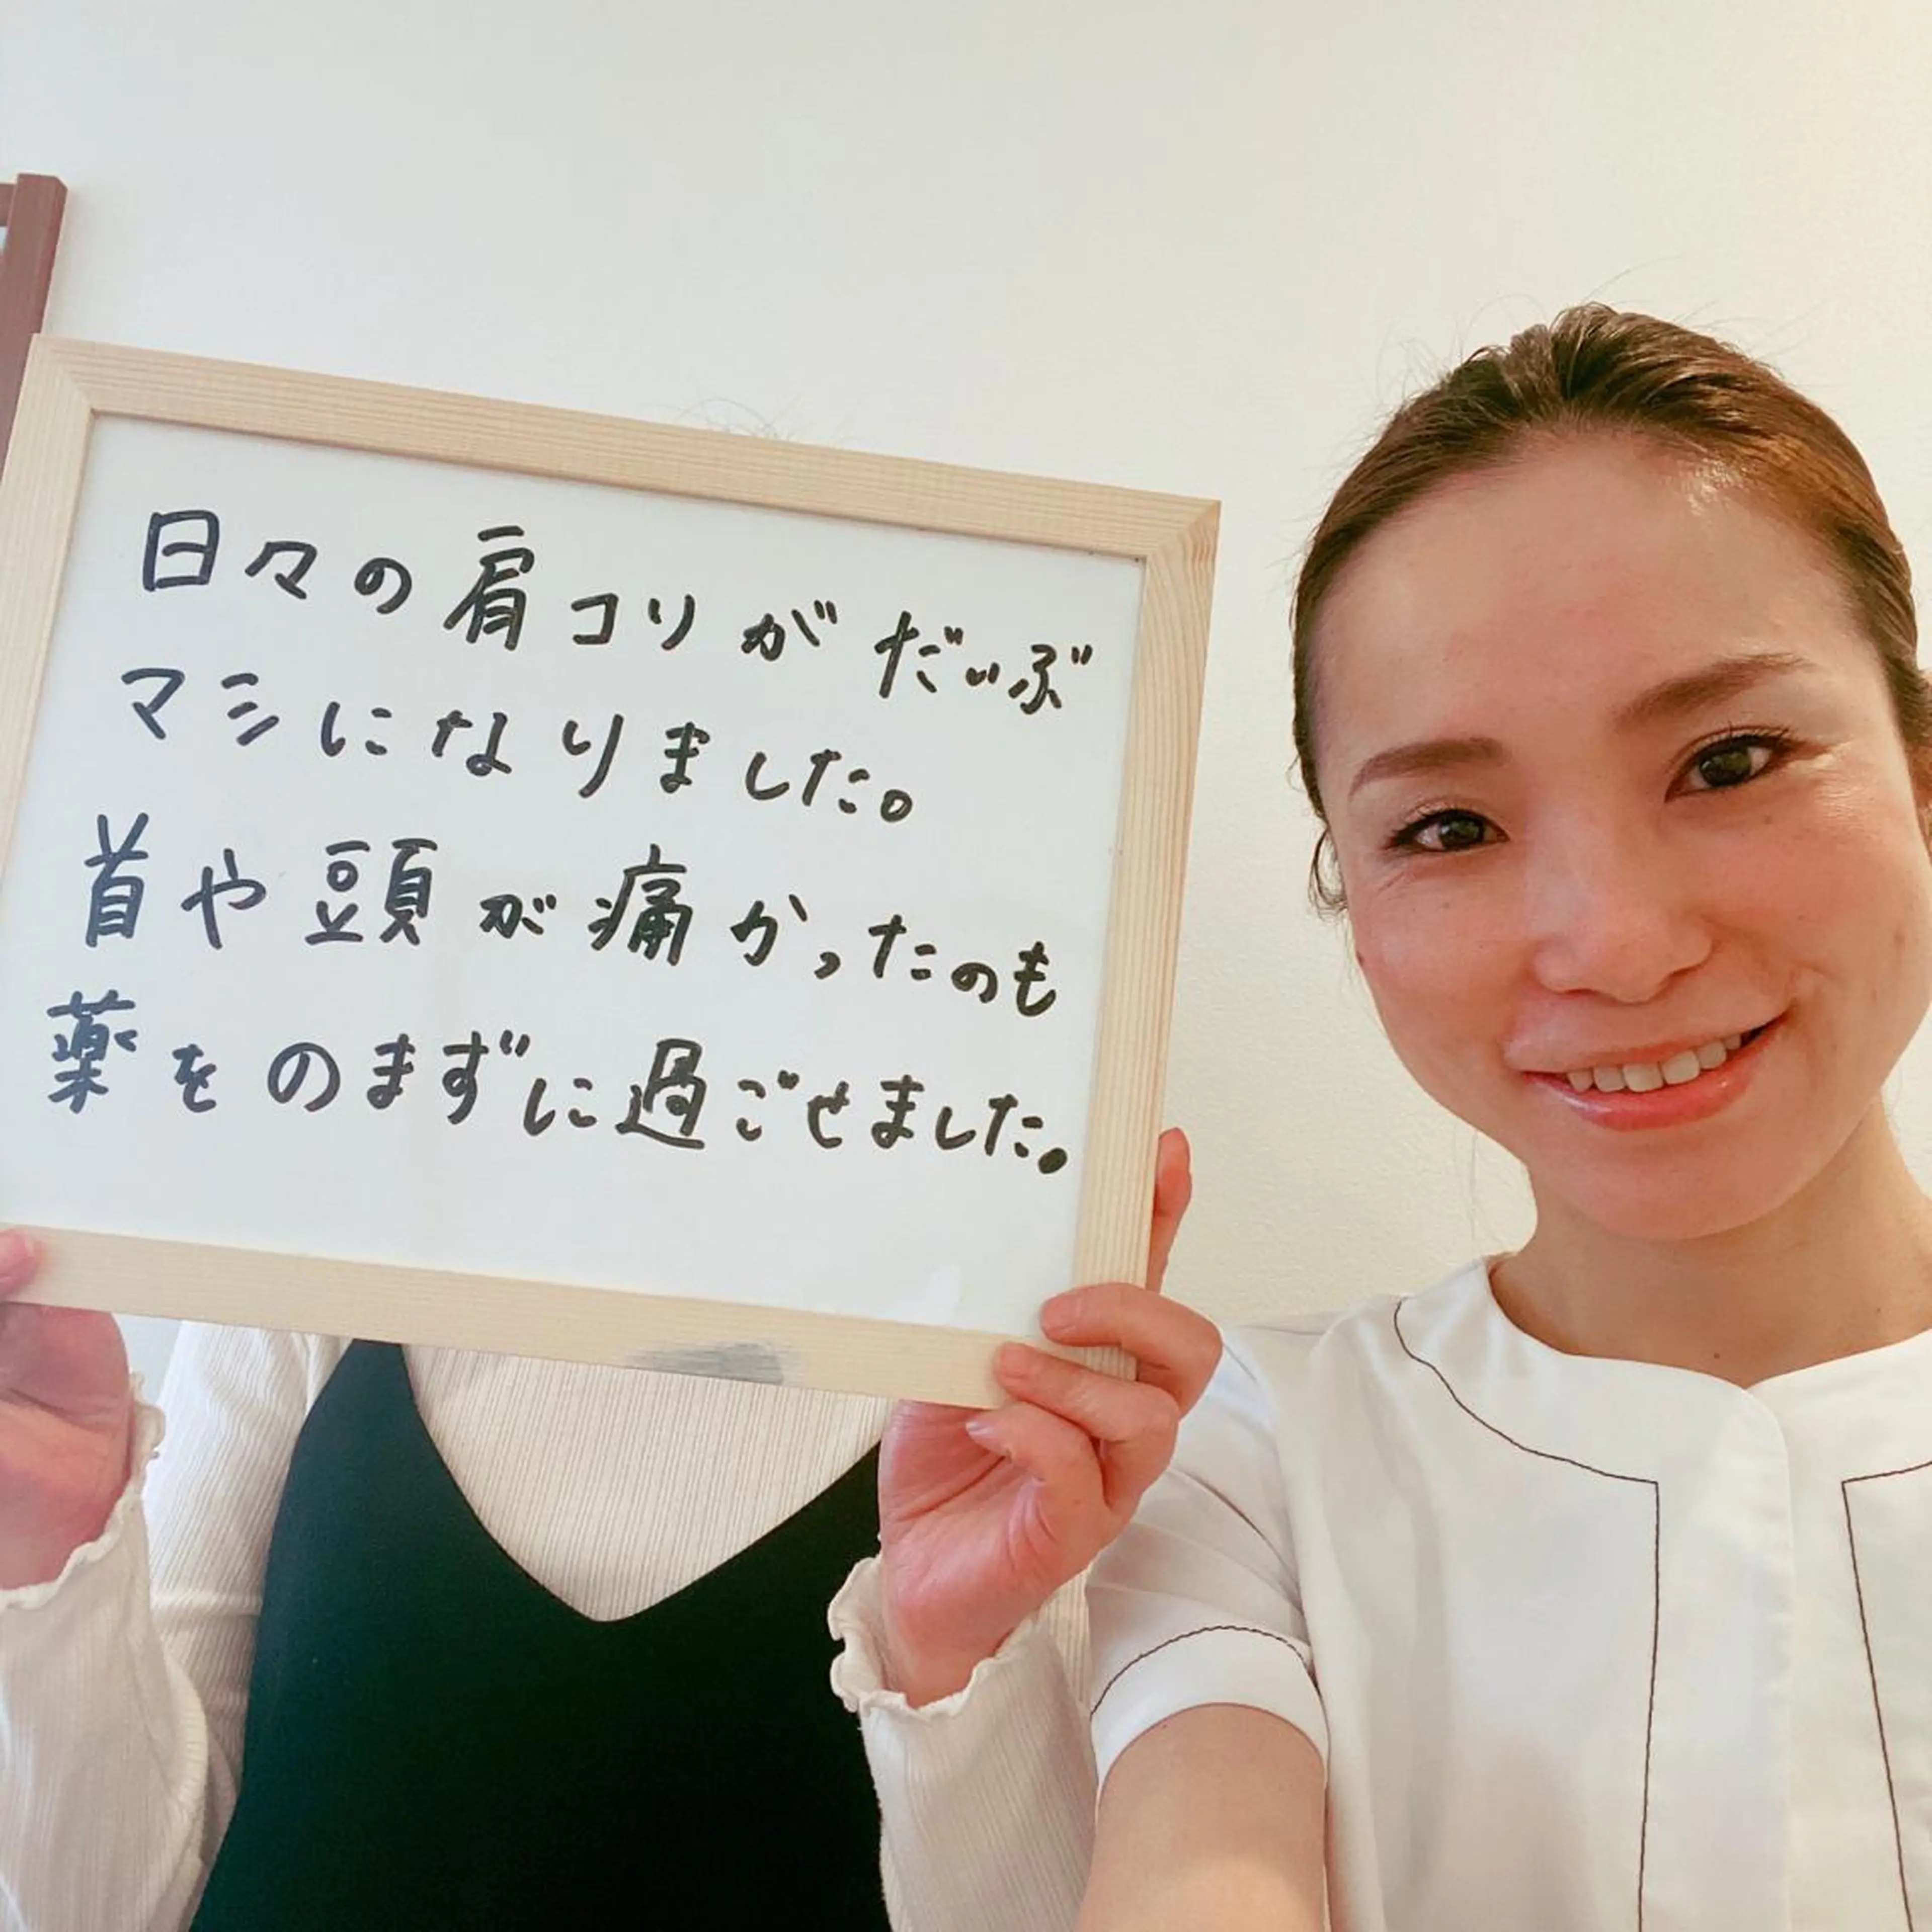 日々の肩コリがだいぶ
マシになりました。
首や頭が痛かったのも
薬をのまずに過ごせました。